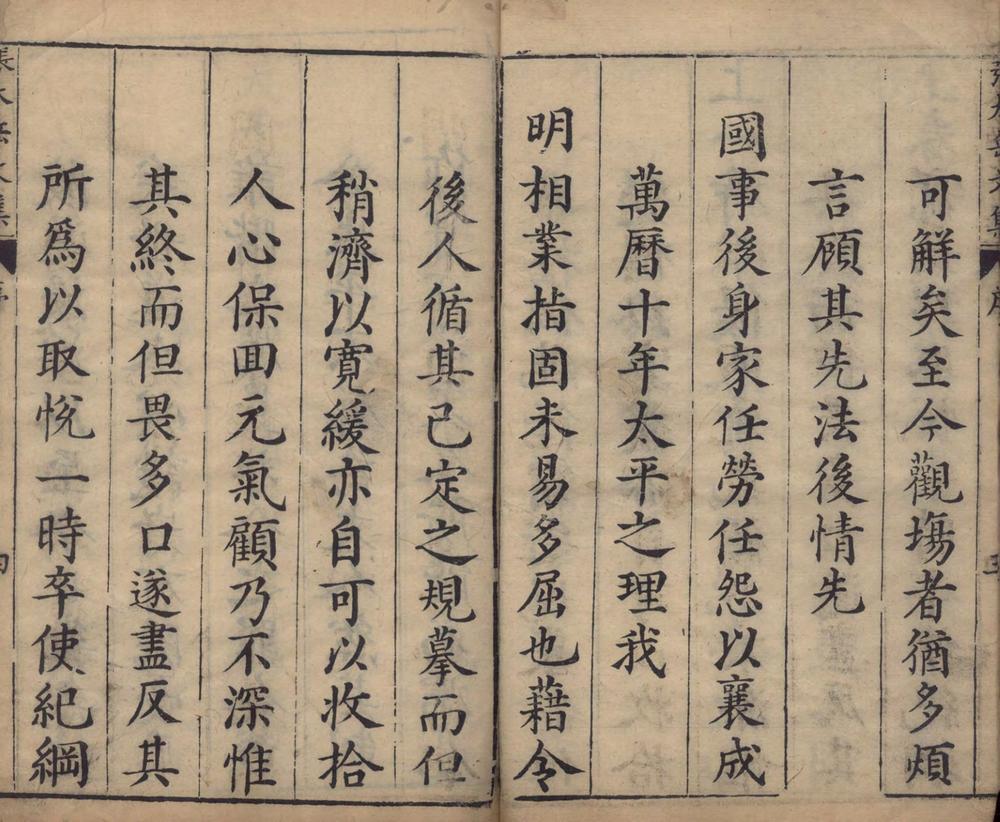 可解矣至今觀塲者猶多煩
言顧其先法後情先
國事後身家任勞任怨以襄成
萬曆十年太平之理我
明相業指固未易多屈也藉令
後人循其已定之規摹而但
稍濟以寬緩亦自可以收拾
人心保囬元氣顧乃不深惟
其終而但畏多口遂盡反其
所爲以取悅一時卒使紀綱